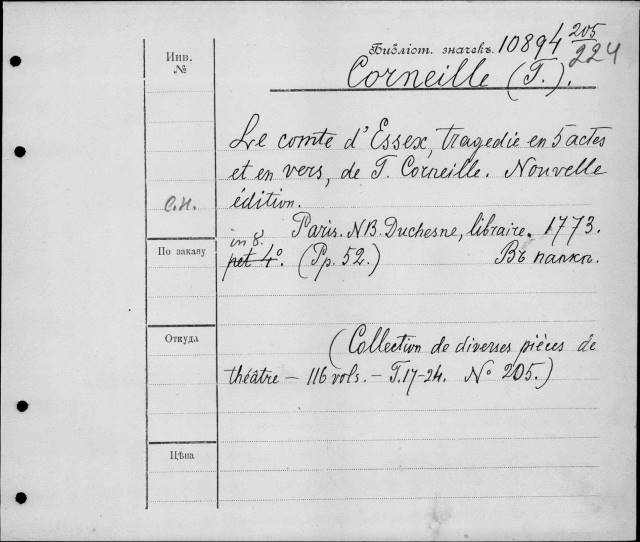 Библіот. значекъ. 10894 205
224
Инв.
№
Corneille (T.).
Le comte d'Essex, tragedie en 5 actes
et en vers, de T. Corneille. Nouvelle
édition.
С.Н.
Paris. N.B. Duchesne, libraire. 1773.
in 8.
По заказу
pet 4°. (Pp. 52.) Въ папкѣ.
Откуда
(Collection de diverses pièces de
théâtre – 116 vols. – T. 17-24. № 205.)
Цѣна